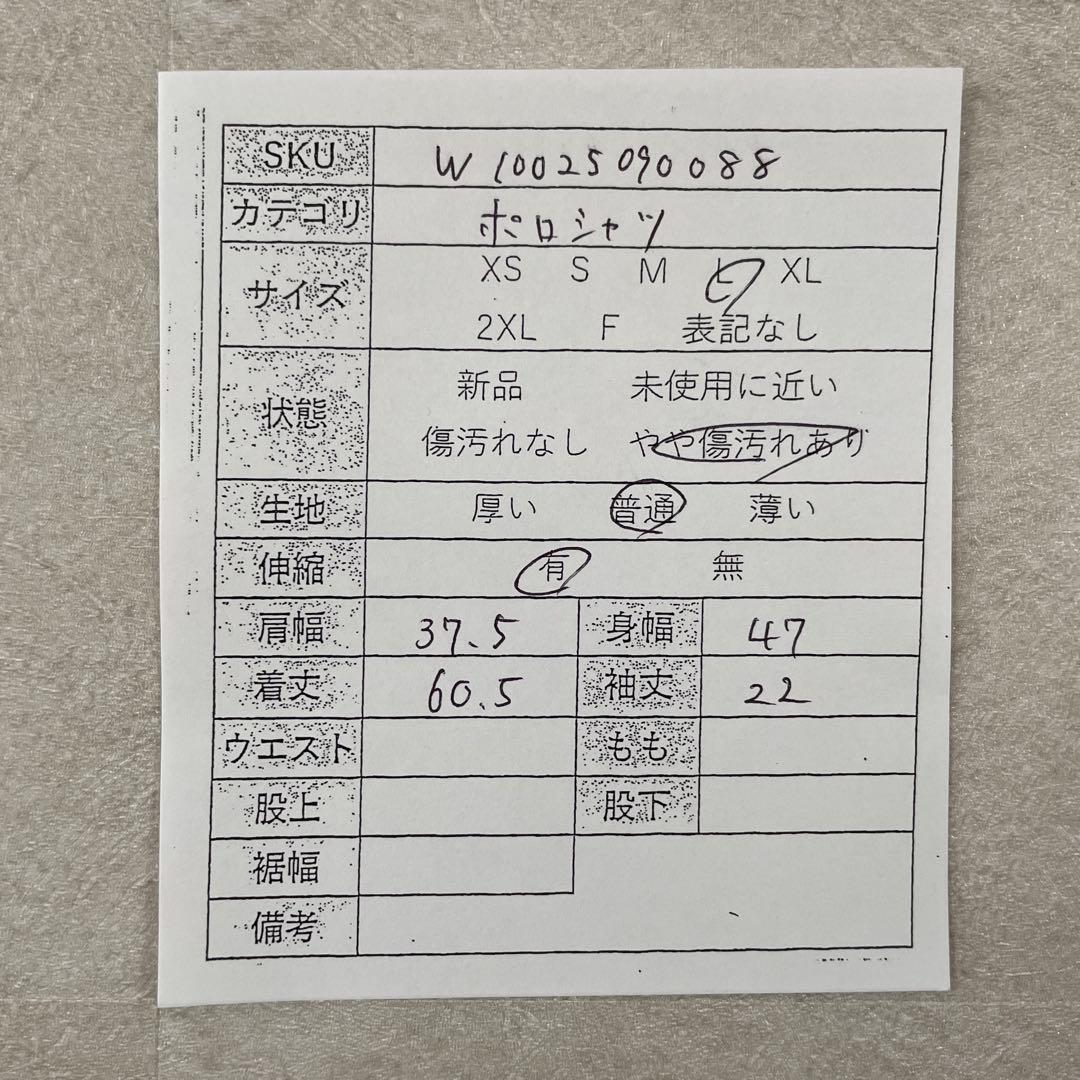 SKU W10025090088
カテゴリ ポロシャツ
サイズ XS S M L XL
2XL F 表記なし
状態 新品 未使用に近い
傷汚れなし やや傷汚れあり
生地 厚い 普通 薄い
伸縮 有 無
肩幅 37.5 身幅 47
着丈 60.5 袖丈 22
ウエスト もも
股上 股下
裾幅
備考